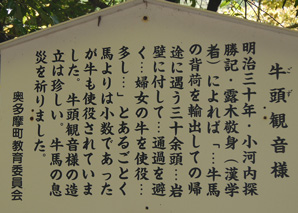 牛頭観音様
ごず
明治三十年・小河内探
勝記・露木敬身（漢学
者）によれば「…牛馬
の背荷を輸出しての帰
途に遇う三十余頭…岩
壁に付して…通過を避
く…婦女の牛を使役…
多し…」とあるごとく
馬よりは小数であった
が牛も使役されていま
した。牛頭観音様の造
立は珍しい　牛馬の息
災を祈りました。
奥多摩町教育委員会